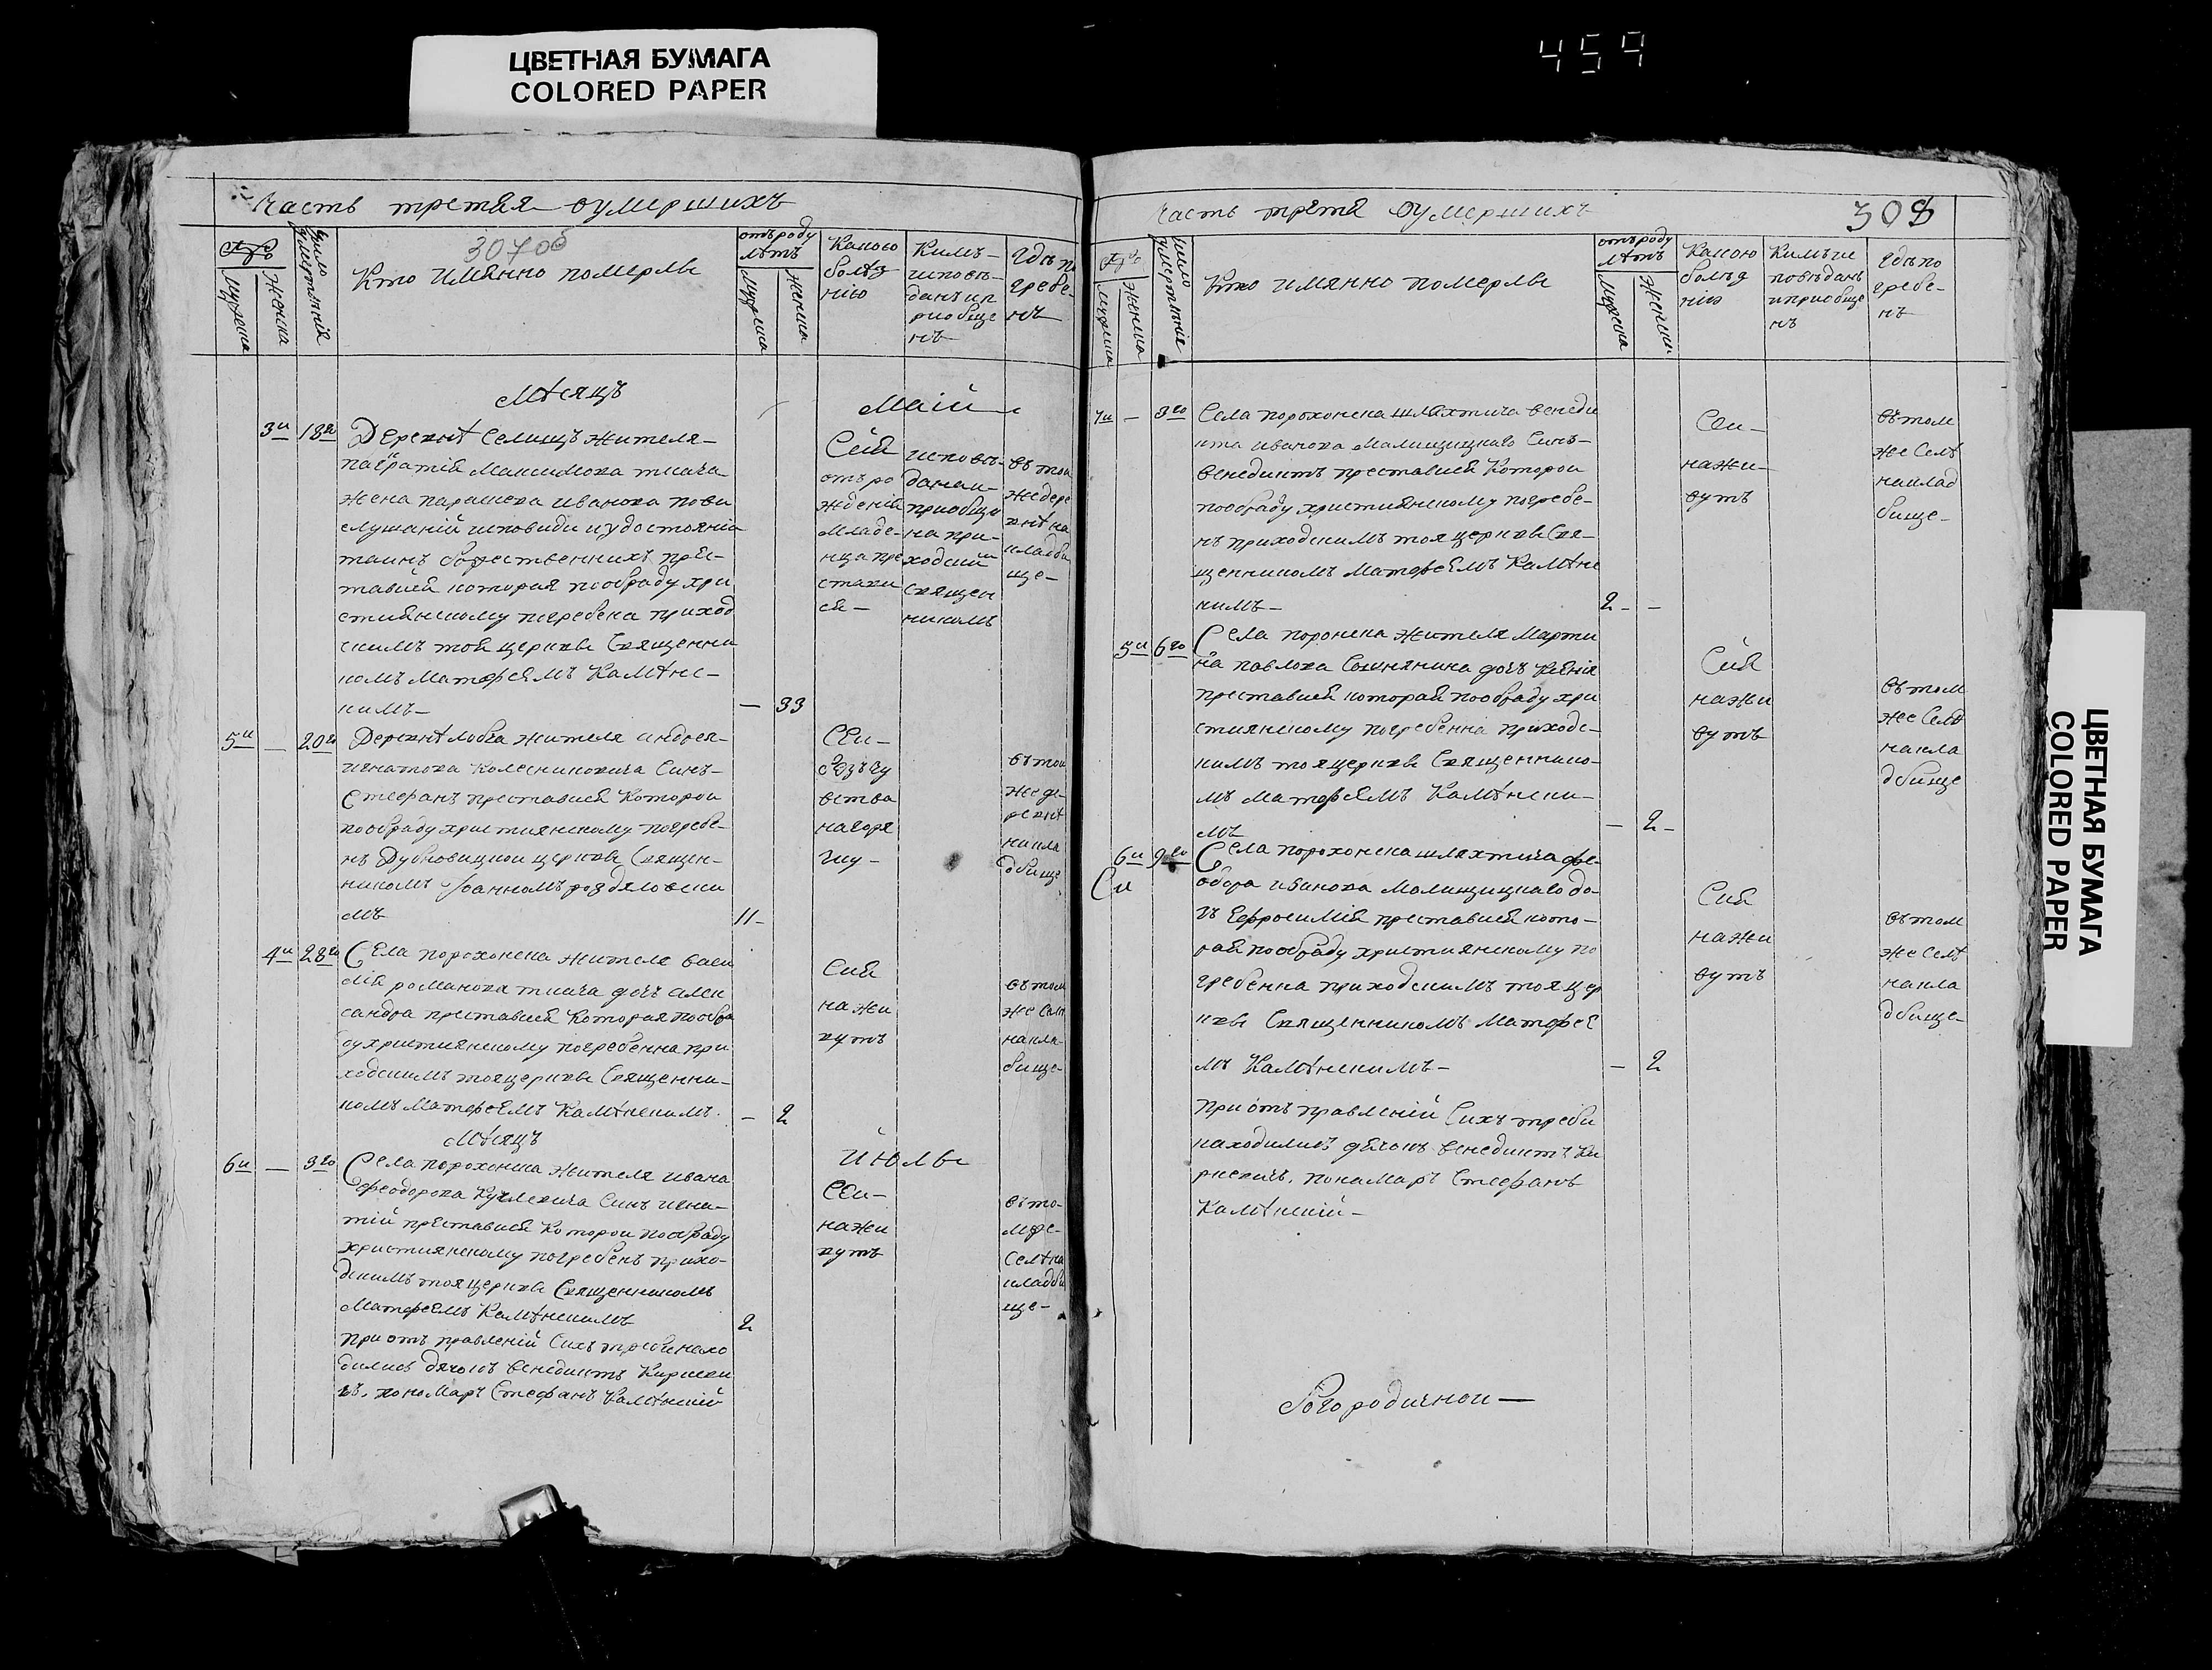 ЦВЕТНАЯ БУМАГА
COLORED PAPER
459
Часть третяя оумершихъ
307об
№
мужеска
женска
число умертвія
Кто имянно померлъ
отъ роду лѣтъ
мужеска
женска
Какою
болѣз
нію
Кимъ
исповѣ-
данъ и п
риобще
нъ
Гдѣ по
гребе-
нъ
Мѣсяцъ Маій
3и 18го Деревнѣ Селищъ жителя
Максимова ткача
жена парашева иванова пови
слушаній исповиди и удостоянія
таинъ божественнихъ прес-
тавися которая пообраду хри
стиянскому погребена приход
скимъ тоя церкви Священни
комъ Матфеемъ Камѣнс-
кимъ — 33
Сія
отъ ро
жденія
младе-
нца пре
стави
ся
исповѣ-
данаи-
приобще
на при-
ходскій
священ
никомъ
въ той
же дере
внѣ на
кладби
ще-
5и — 20го Деревнѣ жителя андрея
игнатова Колесниковича Синъ
Стефанъ преставися Которои
пообраду християнскому погребе-
нъ Дубновицкои церкви Священ-
никомъ Іоанномъ роздяловски
мъ 11-
Сеи-
въ тои
же де-
ревнѣ
накла
дбище
4и 28го Села порохонска жителя васи
лія романова ткача дочъ алек
сандра преставися Которая пообра
ду християнскому погребенна при
ходскимъ тоя церкви Священни-
комъ Матфеемъ Камѣнскимъ. — 2
Сия
на жи
вутъ
въ том
же Селѣ
накла-
бище-
Мѣсяцъ Июль
6и — 3го Села порохонска жителя ивана
феодорова Кучлевича Синъ игна-
тій преставися Которои пообраду
християнскому погребенъ прихо-
дскимъ тоя церкви Священникомъ
Матфеемъ Камѣнскимъ 2
Сеи-
нажи
вутъ
въ то-
мже-
Селѣ на
кладби
ще-
при отъправленій Сихъ требъ нахо
дились дячокъ Венедиктъ Кирневи
чъ, пономаръ Стефанъ Камѣнскій
Часть третя оумершихъ
308
№
мужеска
женска
число умертвіе
Кто имянно померлъ
отъ роду лѣтъ
мужеска
женски
Какою
болѣз
нію
Кимъ ис
повѣданъ
и приобще
нъ
Гдѣ по
гребе-
нъ
7и — 3го Села порохонска шляхтича венеди
кта иванова Малищицкаго Синъ-
венедиктъ преставися Которои
пообраду християнскому погребе-
нъ приходскимъ тоя церкви Свя-
щенникомъ Матфеемъ Камѣнс
кимъ- 2- -
Сеи-
нажи-
вутъ
въ том
же Селѣ
наклад
бище-
5и 6го Села поронска жителя Марти
на павлова дочъ
преставися которая пообраду хри
стиянскому погребенна приходс-
кимъ тоя церкви Священнико-
мъ Матфеямъ Камѣнски-
мъ — 2-
Сия
нажи
вутъ
въ том
же Селѣ
накла
дбище
6и 9го Села порохонска шляхтича фе-
одора иванова Малищицкаго до-
чъ Ефросимія преставися кото-
рая пообраду християнскому по
гребенна приходскимъ тоя цер
кви Священникомъ Матфее
мъ Камѣнскимъ- — 2
Сия
нажи
вутъ
въ том
же Селѣ
накла
дбище-
при отъправленій Сихъ треби
находились дячокъ Венедиктъ Ки
рневичъ, понамаръ Стефанъ
Камѣнскій-
Богородичнои —
ЦВЕТНАЯ БУМАГА
COLORED PAPER